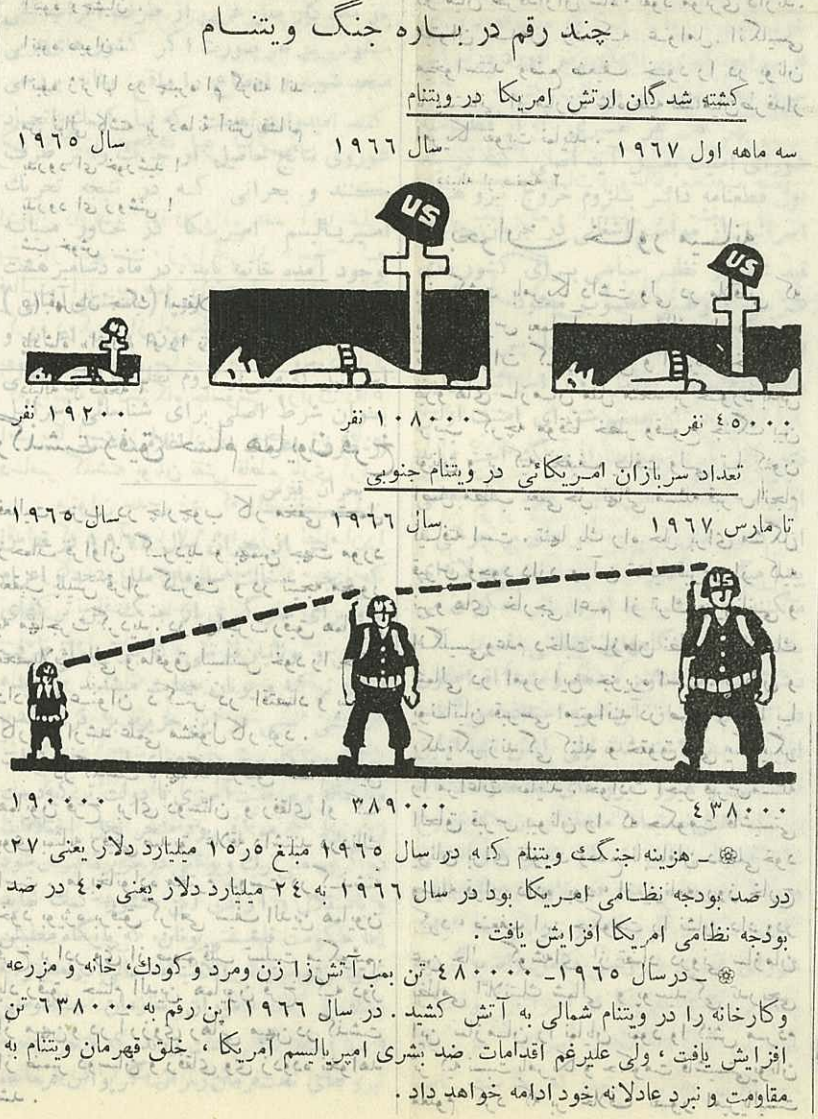 چند رقم در بـاره جنگ ویتنـام
کشته شدگان ارتش امریکا در ویتنام
سه ماهه اول ۱۹۶۷ سال ۱۹۶۶ سال ۱۹۶۵
US US US
۴۵۰۰۰ نفر ۱۰۸۰۰۰ نفر ۱۹۲۰۰ نفر
تعداد سربازان امـریکائی در ویتنام جنوبی
تا مارس ۱۹۶۷ سال ۱۹۶۶ سال ۱۹۶۵
US US
۴۳۸۰۰۰ ۳۸۹۰۰۰ ۱۹۰۰۰۰
ـ هزینه جنگ ویتنام که در سال ۱۹۶۵ مبلغ ۱۵ر۵ میلیارد دلار یعنی ۲۷
در صد بودجه نظـامی امـریکا بود در سال ۱۹۶۶ به ۲۴ میلیارد دلار یعنی ۴۰ در صد
بودجه نظامی امریکا افزایش یافت .
ـ درسال ۱۹۶۵ـ ۴۸۰۰۰۰ تن بمب آتش‌زا زن ومرد و کودك، خانه و مزرعه
وکارخانه را در ویتنام شمالی به آتش کشید . در سال ۱۹۶۶ این رقم به ۶۳۸۰۰۰ تن
افزایش یافت ، ولی علیرغم اقدامات ضد بشری امپریالیسم امریکا ، خلق قهرمان ویتنام به
مقاومت و نبرد عادلانه خود ادامه خواهد داد .